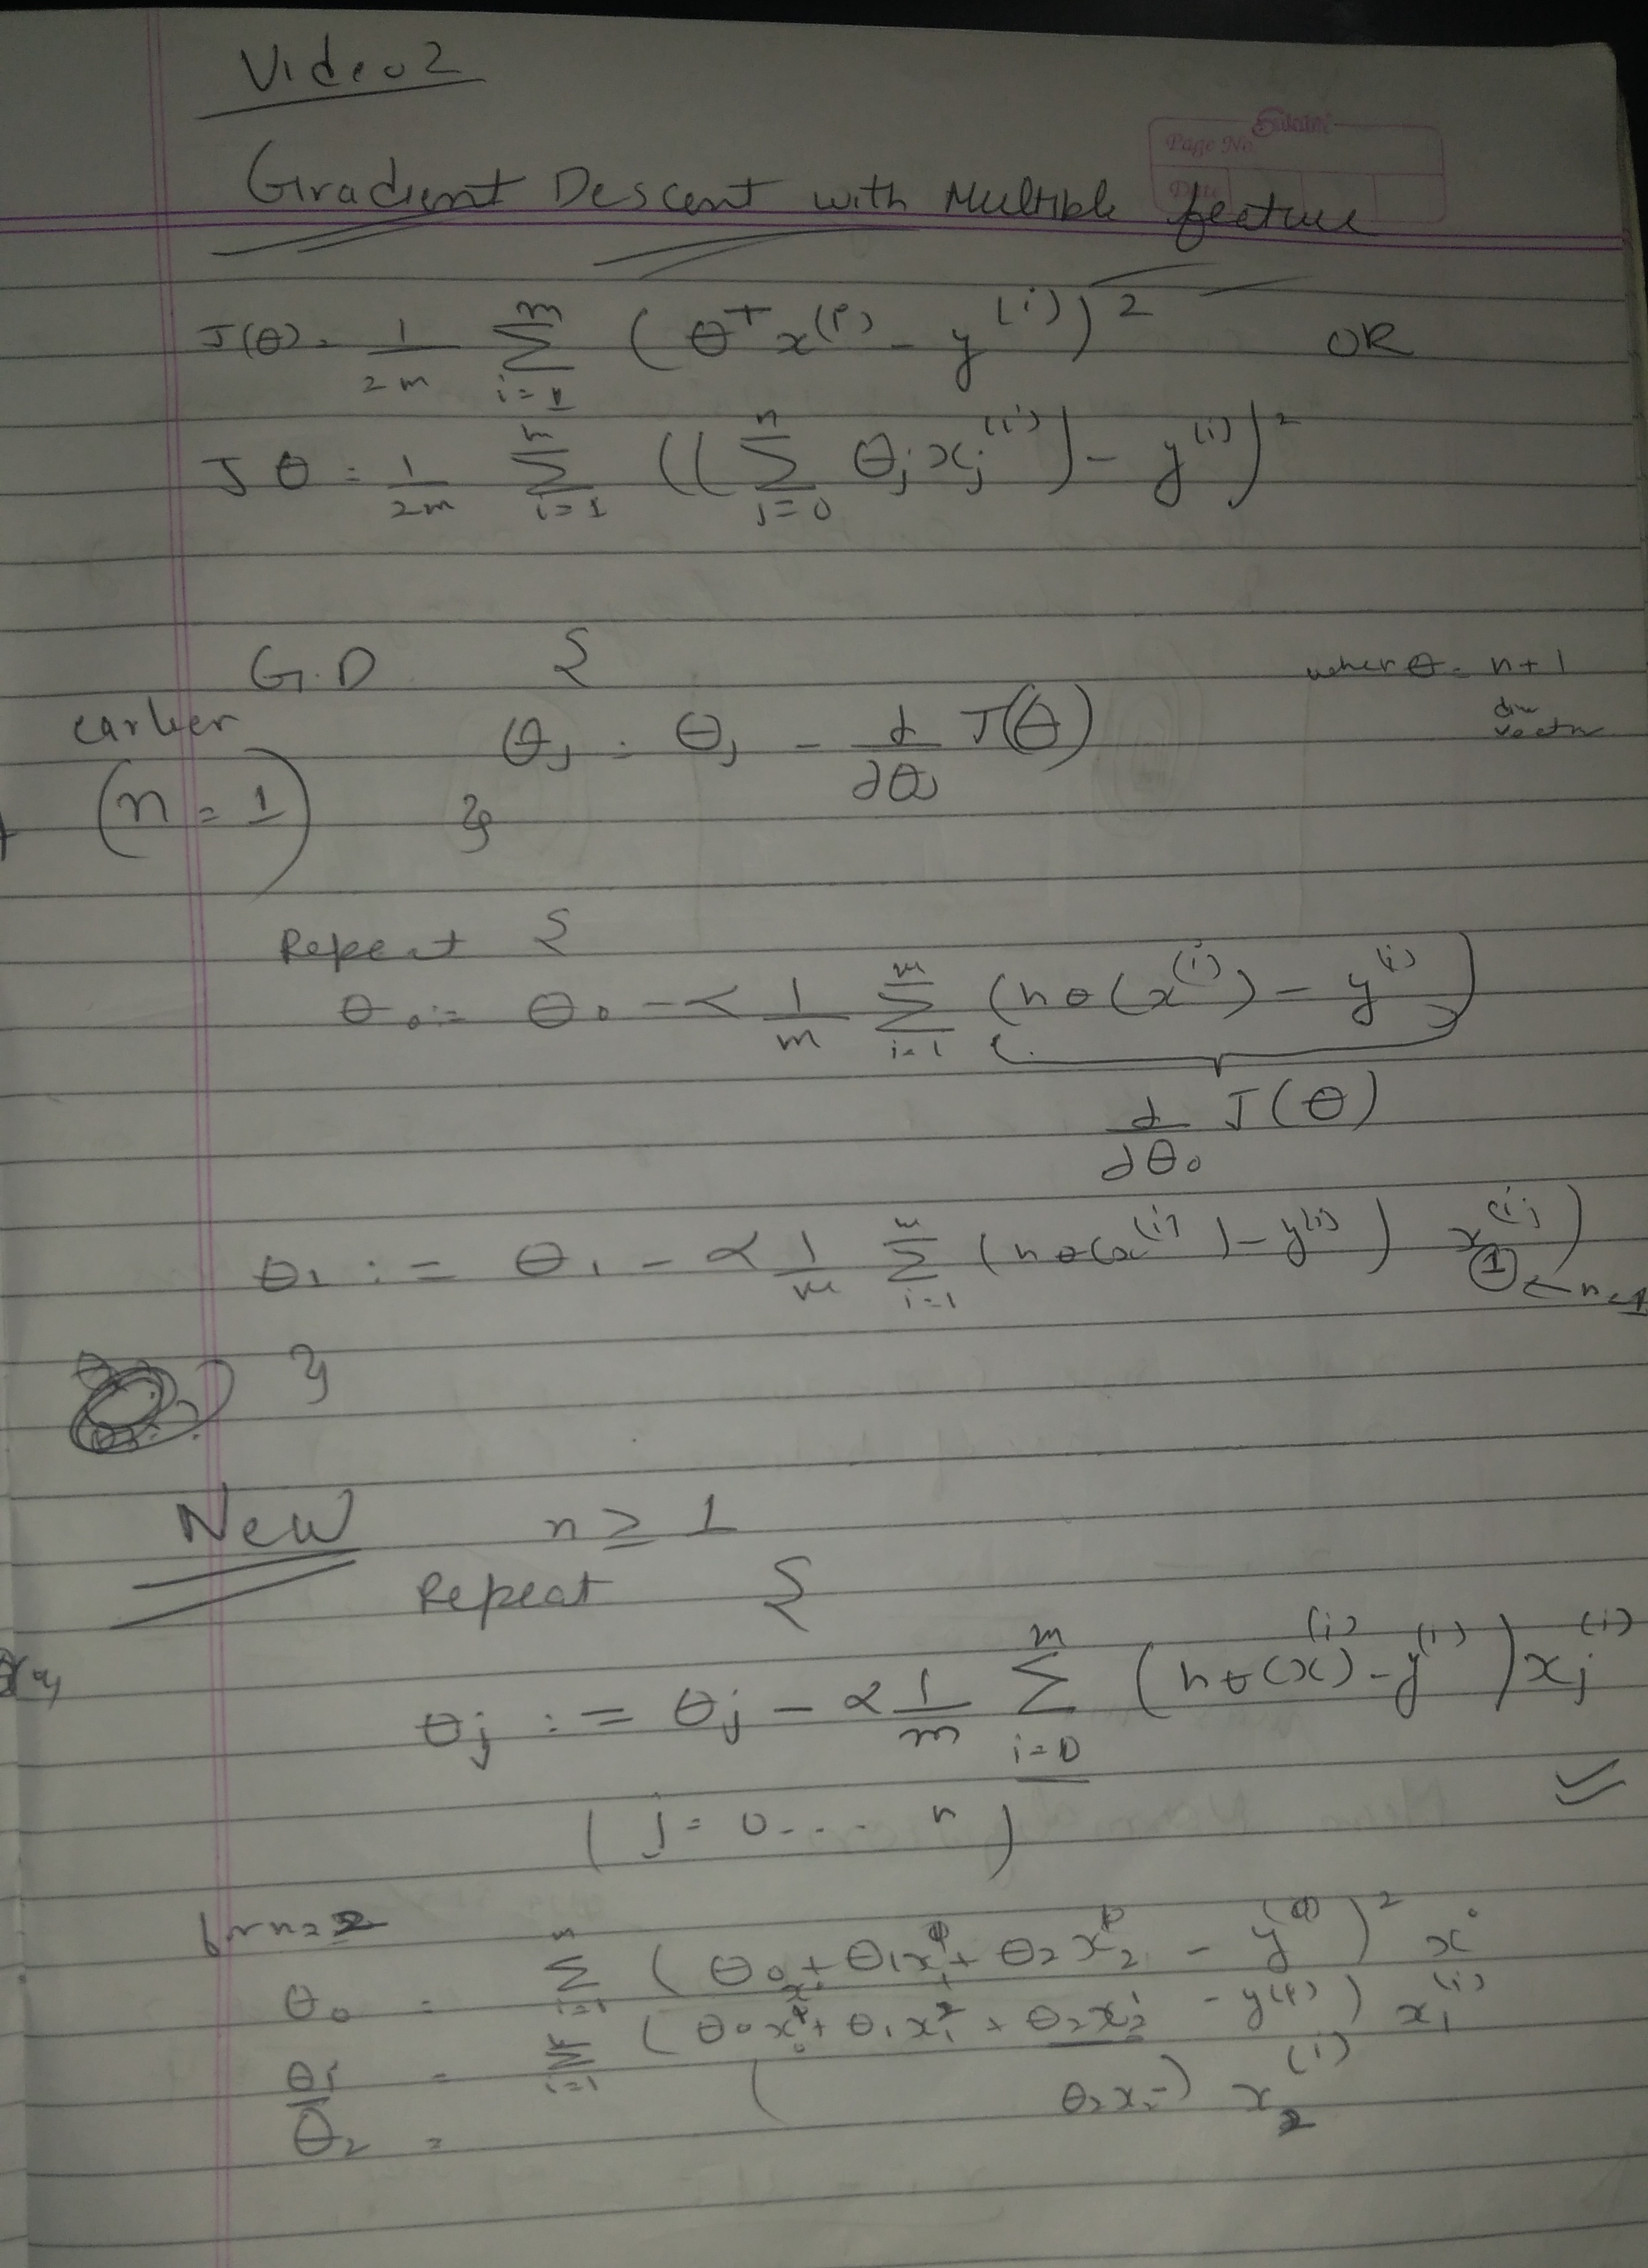 Video 2
Page No.
Date
Gradient Descent with Multiple feature
J(θ) = 1/2m Σ_{i=1}^{m} (θ^T x^(i) - y^(i))^2 OR
J θ = 1/2m Σ_{i=1}^{n} ((Σ_{j=0}^{n} θ_j x_j^(i)) - y^(i))^2
G.D { where θ = n+1
dim vector
earlier
θ_j : θ_j - ∂/∂θ_j J(θ)
(n = 1) }
Repeat {
θ_0 := θ_0 - α 1/m Σ_{i=1}^{m} (hθ(x^(i)) - y^(i))
∂/∂θ_0 J(θ)
θ_1 := θ_1 - α 1/m Σ_{i=1}^{m} (hθ(x^(i)) - y^(i)) x_1^(i)) ← n=1
}
New n ≥ 1
Repeat {
θ_j := θ_j - α 1/m Σ_{i=0}^{m} (hθ(x)^(i) - y^(i)) x_j^(i)
(j = 0... n)
for n=2
θ_0 = Σ_{i=1}^{n} (θ_0 x_0 + θ_1 x_1 + θ_2 x_2 - y)^2 x
θ_1 = Σ_{i=1} (θ_0 x_0 + θ_1 x_1 + θ_2 x_2 - y) x_1^(i)
θ_2 = ( θ_2 x_2 -) x_2^(i)